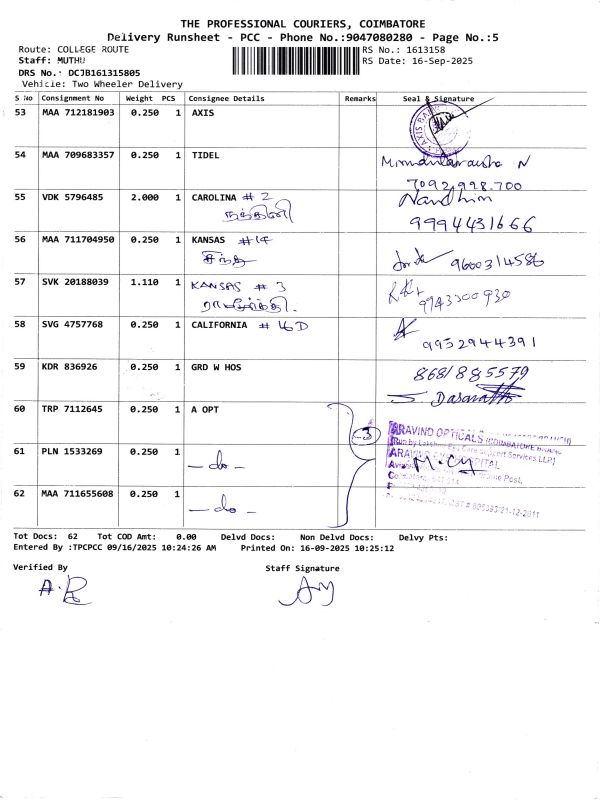 THE PROFESSIONAL COURIERS, COIMBATORE
Delivery Runsheet - PCC - Phone No.:9047080280 - Page No.:5
Route: COLLEGE ROUTE RS No.: 1613158
Staff: MUTHU RS Date: 16-Sep-2025
DRS No.: DCJB161315805
Vehicle: Two Wheeler Delivery
S No Consignment No Weight PCS Consignee Details Remarks Seal & Signature
53 MAA 712181903 0.250 1 AXIS
AXIS BANK
54 MAA 709683357 0.250 1 TIDEL
N
7092 998 700
55 VDK 5796485 2.000 1 CAROLINA # 2 Nandhini
நந்தினி 9994431666
56 MAA 711704950 0.250 1 KANSAS #14
9600314586
57 SVK 20188039 1.110 1 KANSAS # 3
9943300930
58 SVG 4757768 0.250 1 CALIFORNIA # 16D
9952944391
59 KDR 836926 0.250 1 GRD W HOS 8681885579
S. Dasarath
60 TRP 7112645 0.250 1 A OPT
3
ARAVIND OPTICALS
61 PLN 1533269 0.250 1 - do -
62 MAA 711655608 0.250 1 - do -
Tot Docs: 62 Tot COD Amt: 0.00 Delvd Docs: Non Delvd Docs: Delvy Pts:
Entered By :TPCPCC 09/16/2025 10:24:26 AM Printed On: 16-09-2025 10:25:12
Verified By Staff Signature